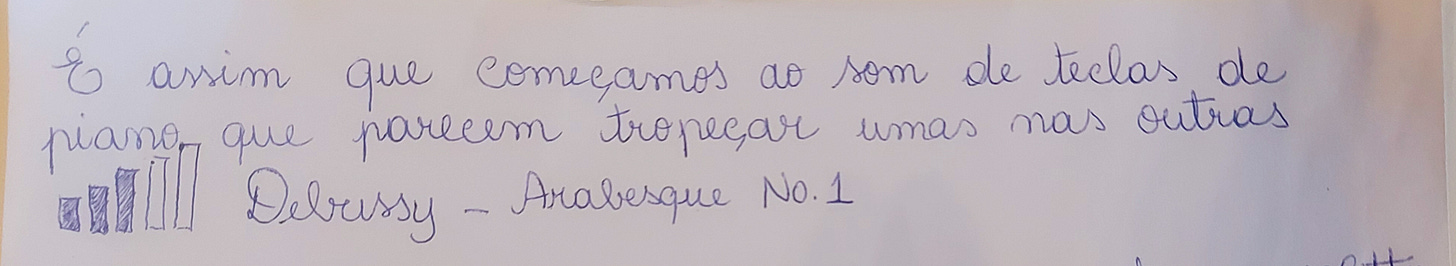 É assim que começamos ao som de teclas de
piano que parecem tropeçar umas nas outras
Debussy - Arabesque No. 1